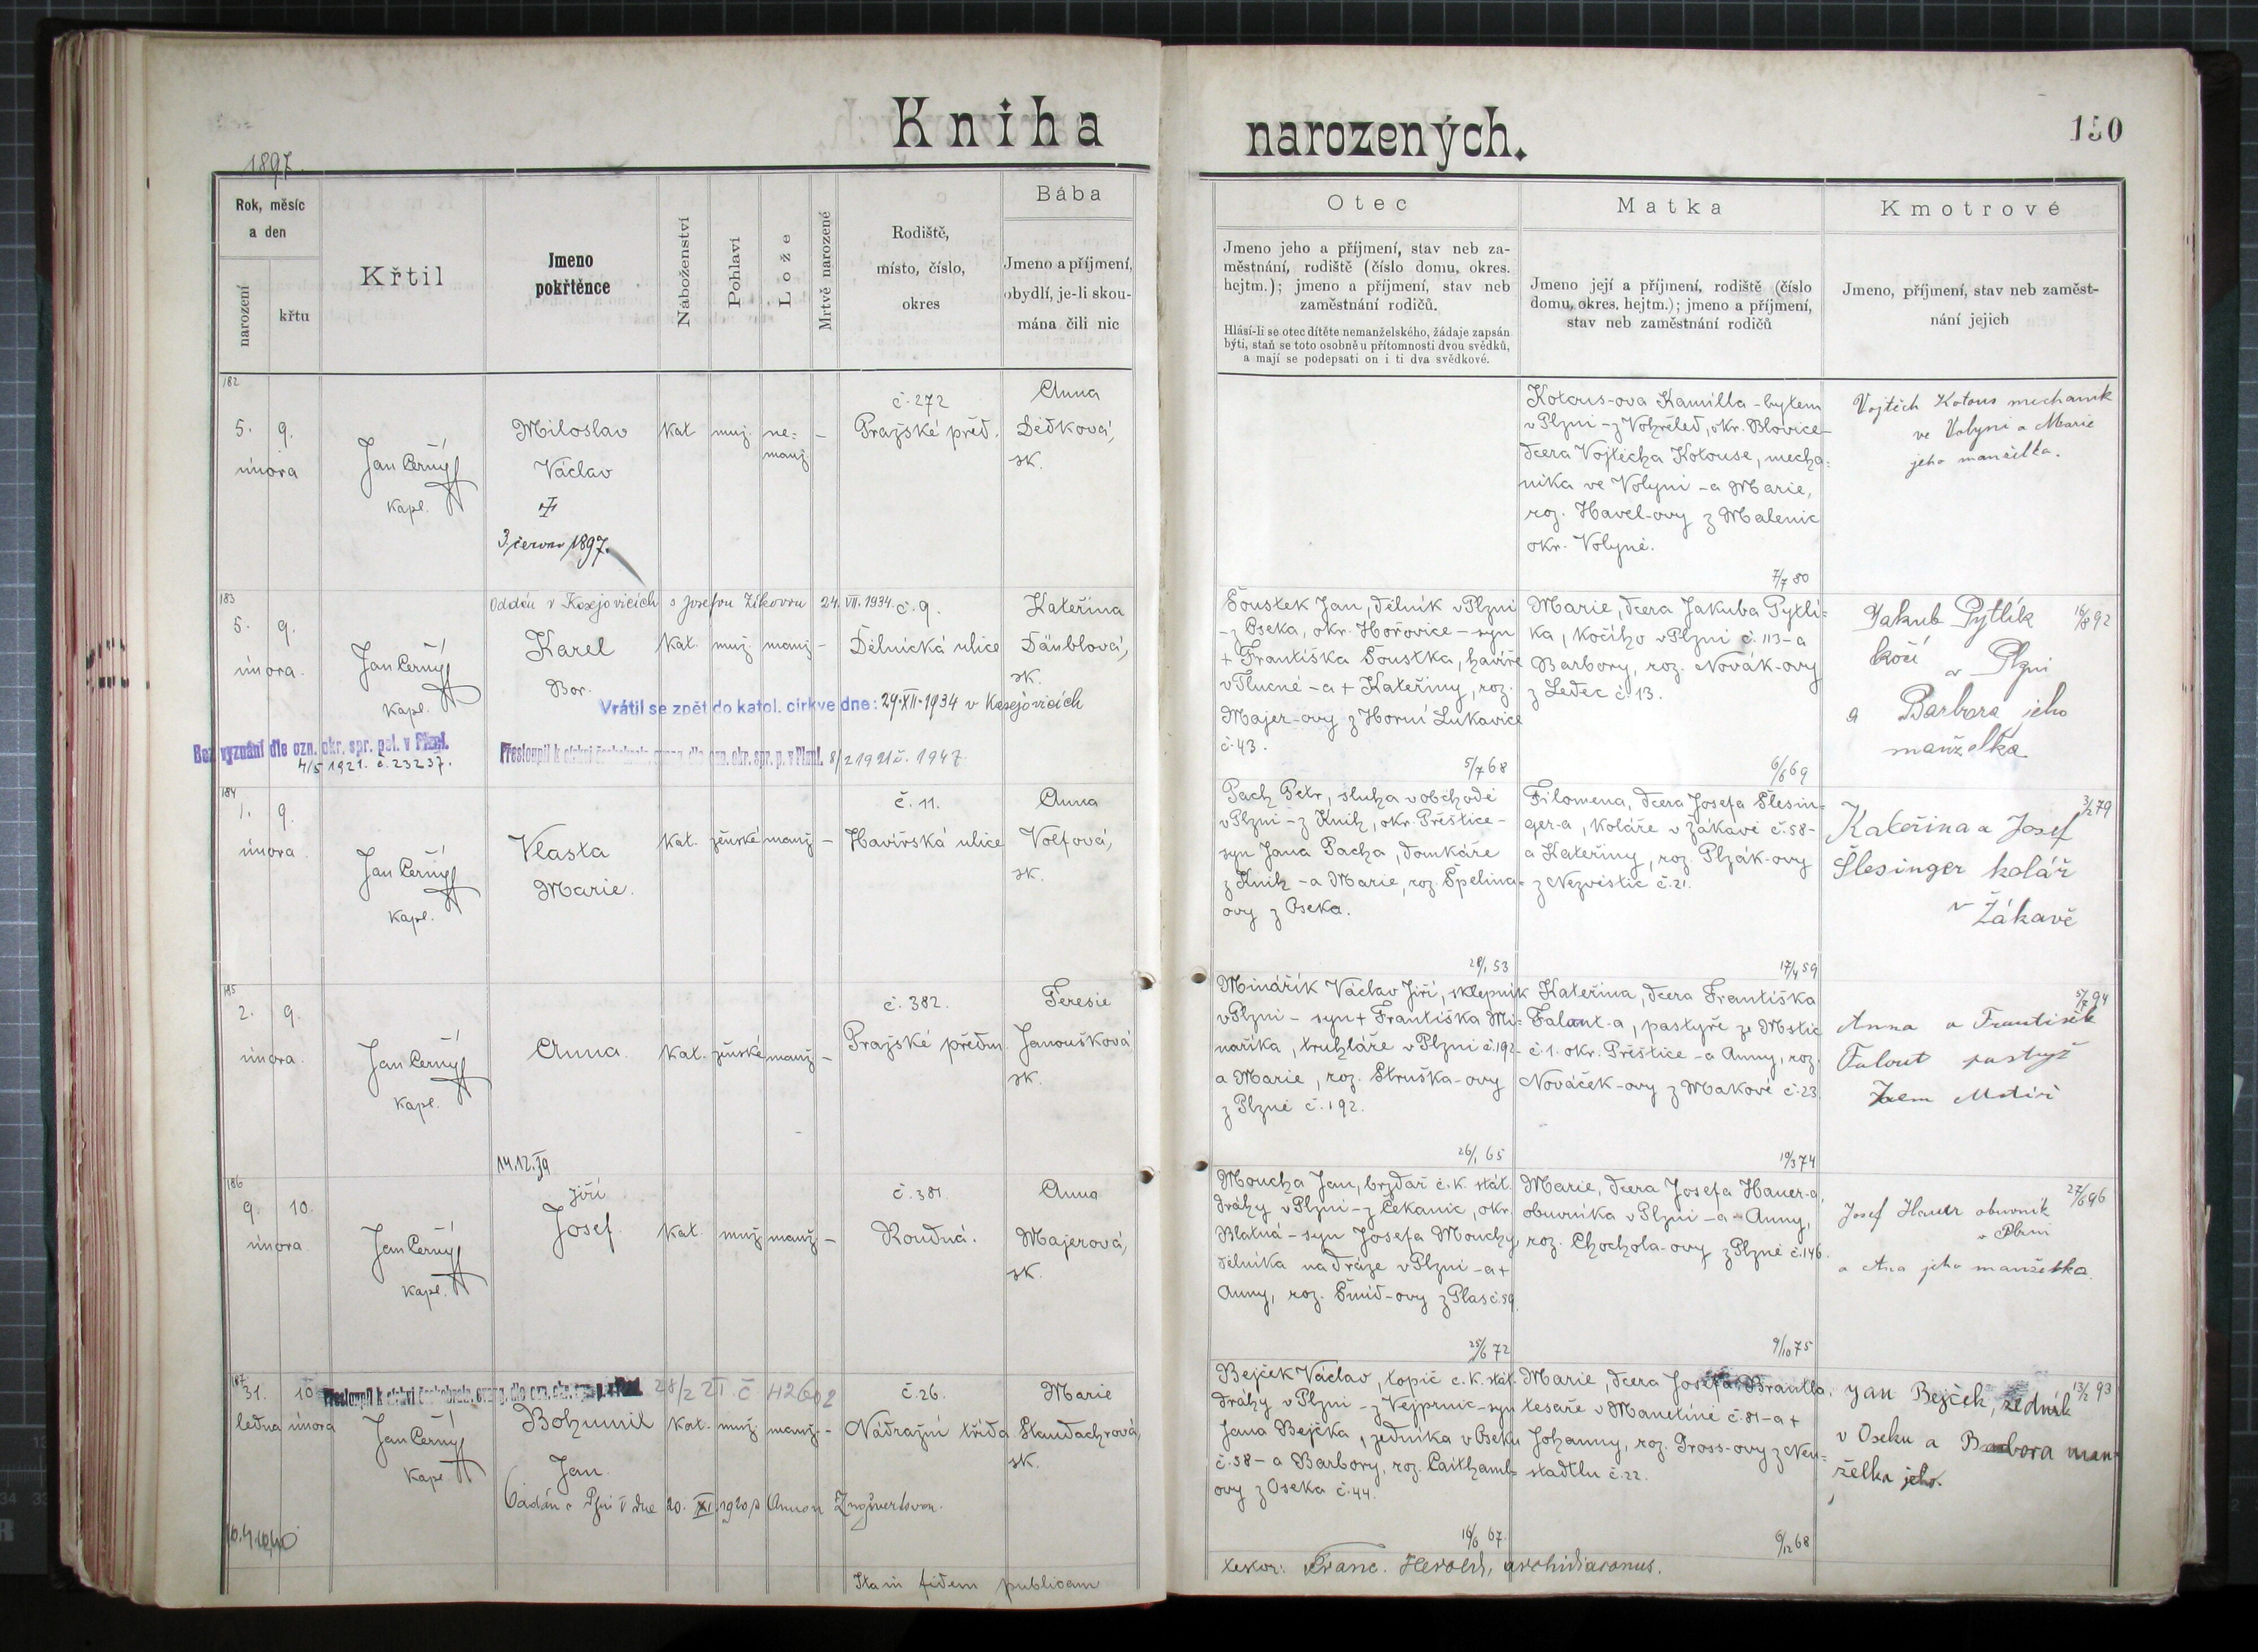 Kniha
narozených.
150
1897.
Rok, měsíc
a den
narození
křtu
Křtil
Jmeno
pokřtěnce
Náboženství
Pohlaví
Lože
Mrtvě narozené
Rodiště,
místo, číslo,
okres
Bába
Jmeno a příjmení,
obydlí, je-li skou-
mána čili nic
Otec
Jmeno jeho a příjmení, stav neb za-
městnání, rodiště (číslo domu, okres.
hejtm.); jmeno a příjmení, stav neb
zaměstnání rodičů.
Hlásí-li se otec dítěte nemanželského, žádaje zapsán
býti, staň se toto osobně u přítomnosti dvou svědků,
a mají se podepsati on i ti dva svědkové.
Matka
Jmeno její a příjmení, rodiště (číslo
domu, okres. hejtm.); jmeno a příjmení,
stav neb zaměstnání rodičů
Kmotrové
Jmeno, příjmení, stav neb zaměst-
nání jejich
182
5. 9.
února
Jan Černý
Kapl.
Miloslav
Václav
3. června 1897.
Kat. muž. ne=
manž. –
č. 272
Pražské před.
Anna
Dědková,
sk.
Kotous-ova Kamilla - bytem
v Plzni - z Vohřeled, okr. Blovice -
dcera Vojtěcha Kotouse, mecha=
nika ve Volyni - a Marie,
roz. Havel-ovy z Malenic
okr. Volyně.
7/7 80
Vojtěch Kotous mechanik
ve Volyni a Marie
jeho manželka.
183
Oddán v Kasejovicích s Josefou Zíkovou 24. VII. 1934.
5. 9.
února.
Jan Černý
Kapl.
Karel
Bor.
Kat. muž. manž. –
č. 9.
Dělnická ulice
Kateřina
Däublová,
sk.
Vrátil se zpět do katol. církve dne: 29. XII. 1934 v Kasejovicích
Bez vyznání dle ozn. okr. spr. pol. v Plzni.
4/5 1921. č. 23237.
Přestoupil k církvi českobratr. evang. dle ozn. okr. spr. p. v Plzni. 8/2 1921 č. 1947
Šoustek Jan, dělník v Plzni
- z Oseka, okr. Hořovice - syn
+ Františka Šoustka, havíře
v Tlučné - a + Kateřiny, roz.
Majer-ovy z Horní Lukavice
č. 43.
5/7 68
Marie, dcera Jakuba Pytlí=
ka, kočího v Plzni č. 113 - a
Barbory, roz. Novák-ovy
z Ledec č. 13.
6/6 69
Jakub Pytlík 16/8 92
kočí v Plzni
a Barbora jeho
manželka
184
1. 9.
února.
Jan Černý
Kapl.
Vlasta
Marie.
Kat. ženské manž. –
č. 11.
Havířská ulice
Anna
Volfová,
sk.
Pach Petr, sluha v obchodě
v Plzni - z Knih, okr. Přeštice -
syn Jana Pacha, domkáře
z Knih - a Marie, roz. Špelina=
ovy z Oseka.
28/1 53
Filomena, dcera Josefa Šlesin=
ger-a, koláře v Žákavě č. 58 -
a Kateřiny, roz. Plzák-ovy
z Nezvěstic č. 21.
17/4 59
3/2 79
Kateřina a Josef
Šlesinger kolář
v Žákavě
185
2. 9.
února.
Jan Černý
Kapl.
Anna.
Kat. ženské manž. –
č. 382.
Pražské předm.
Teresie
Janoušková
sk.
Minářík Václav Jiří, sklepník
v Plzni - syn + Františka Mi=
naříka, truhláře v Plzni č. 192 -
a Marie, roz. Struška-ovy
z Plzně č. 192.
26/1 65
Kateřina, dcera Františka
Falout-a, pastýře ze Mstic
č. 1. okr. Přeštice - a Anny, roz.
Nováček-ovy z Makové č. 23
19/3 74
5/7 94
Anna a František
Falout pastýř
186
14.12.39
9. 10.
února.
Jan Černý
Kapl.
Jiří
Josef.
Kat. muž. manž. –
č. 381.
Roudná.
Anna
Majerová,
sk.
Moucha Jan, brzdař c. k. stát.
dráhy v Plzni - z Čekanic, okr.
Blatná - syn Josefa Mouchy,
dělníka na dráze v Plzni - a +
Anny, roz. Šmíd-ovy z Plas č. 59.
25/6 72
Marie, dcera Josefa Hauer-a,
obuvníka v Plzni - a - Anny,
roz. Chochola-ovy z Plzně č. 146.
9/10 75
27/6 96
Josef Hauer obuvník
v Plzni
a Ana jeho manželka.
187
31. 10
ledna února
Přestoupil k církvi českobratr. evang. dle ozn. okr. spr. p. v Plzni. 28/2 21 č 42602
Jan Černý
Kapl
Bohumil
Jan.
Kat. muž. manž. –
č. 26.
Nádražní třída
Marie
Staudachrová,
sk.
Oddán v Plzni dne 20. XI. 1920 s Annou
Bejček Václav, topič c. k. stát.
dráhy v Plzni - z Vejprnic - syn
Jana Bejčka, zedníka v Oseku
č. 58 - a Barbory, roz. Caithaml=
ovy z Oseka č. 44.
16/6 67.
Marie, dcera Josefa Brautla,
tesaře v Manetíně č. 81 - a +
Johanny, roz. Pross-ovy z Neu=
stadtlu č. 22.
6/12 68
13/2 93
Jan Bejček, zedník
v Oseku a Barbora man-
želka jeho.
In fidem publicam
Franc. Herold, archidiaconus.